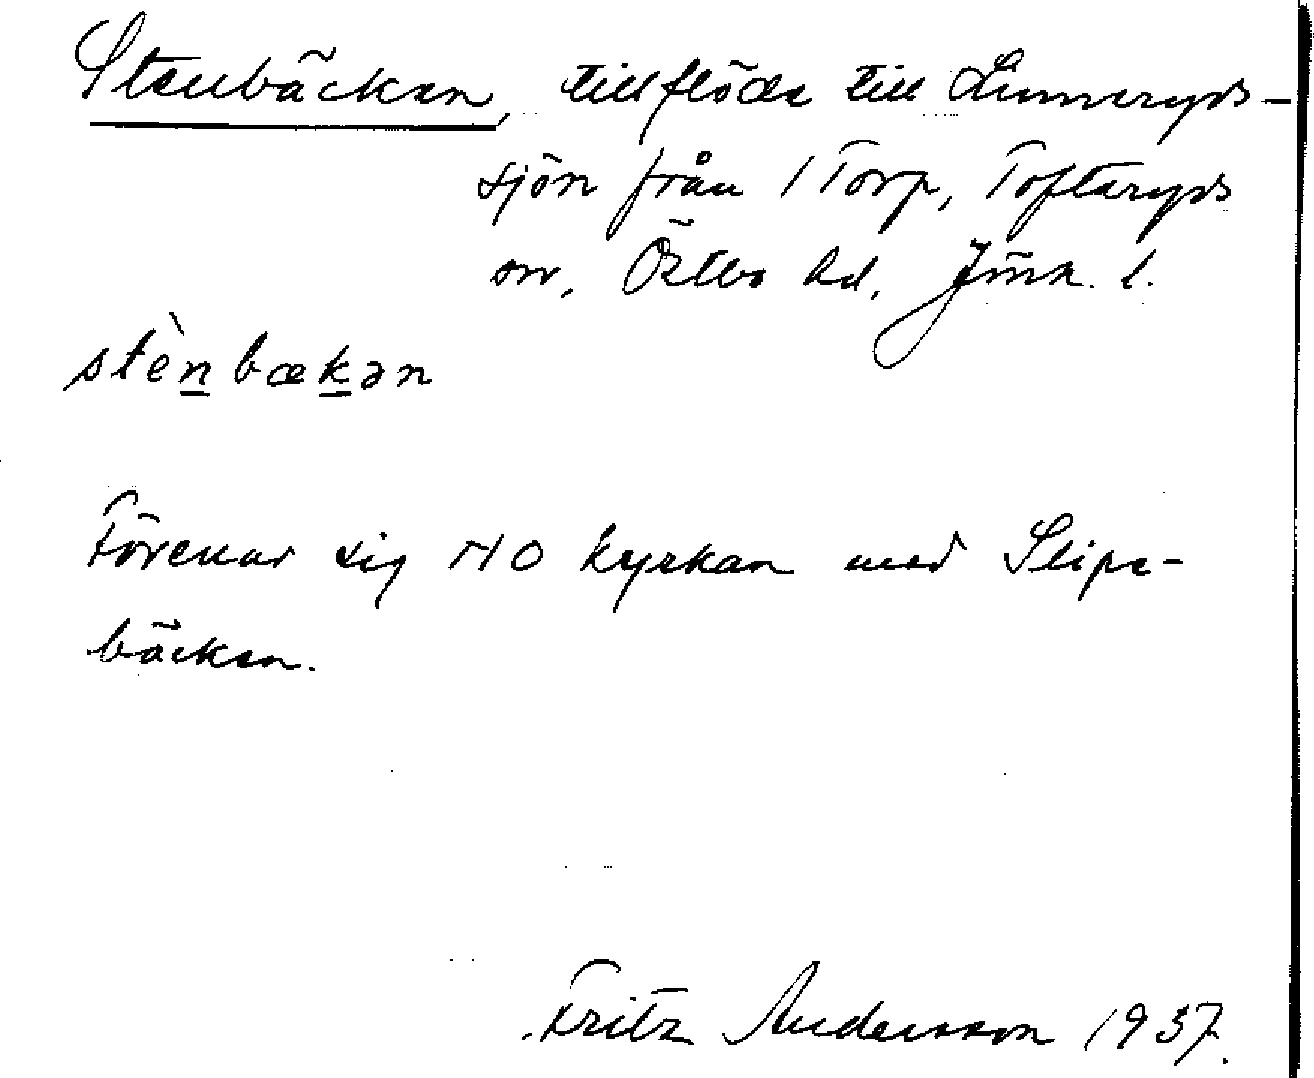 Stenbäcken, tillflöde till Linneryds-
sjön från 1 Torp, Tofteryds
sn, Östbo hd, Jönk. l.
stènbækən
Förenar sig NO kyrkan med Slipe-
bäcken.
Fritz Andersson 1937.